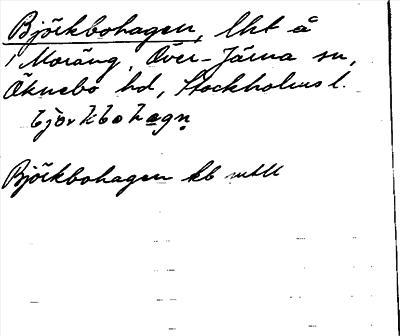 Björkbohagen, lht å
Moräng, Över-Järna sn,
Öknebo hd, Stockholms l.
björkbohagn
Björkbohagen kb